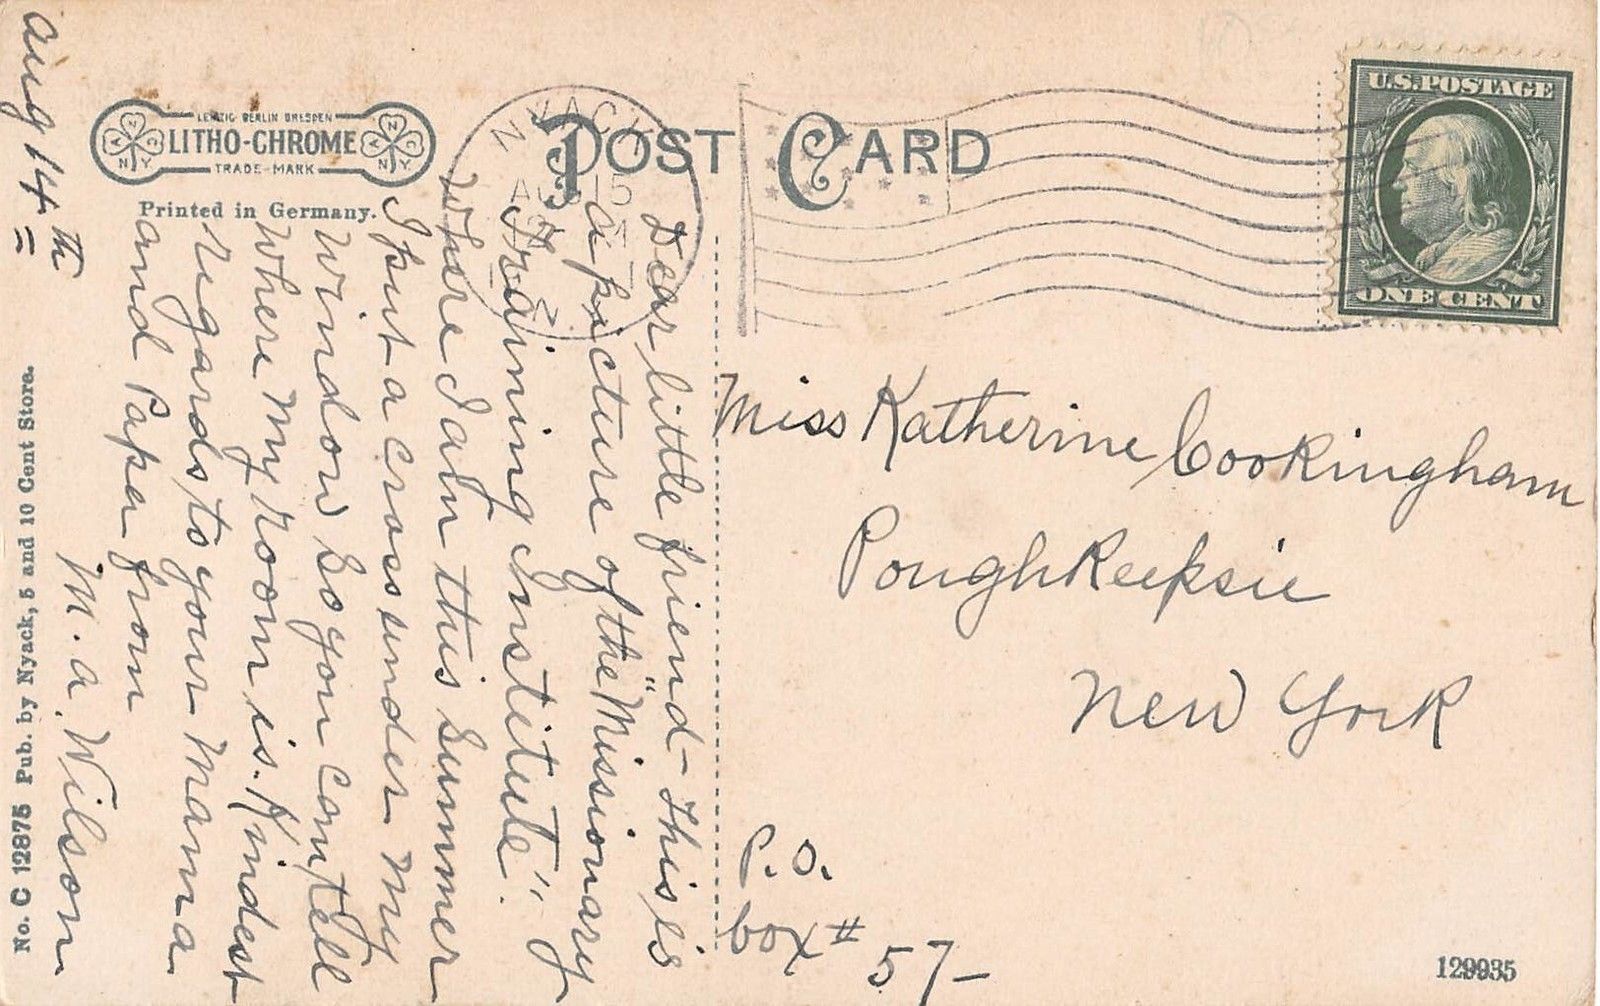 Aug 14th
LEIPZIG BERLIN DRESDEN
LITHO-CHROME
TRADE-MARK
Printed in Germany.
POST CARD
NYACK
N. Y.
U.S. POSTAGE
ONE CENT
Dear little friend - This is
a picture of the "Missionary
Training Institute".
Where I am this summer
I put a cross under my
window so you can tell
where my room is. Kindest
regards to your Mama
and Papa from
M. A. Wilson
Miss Katherine Cookingham
Poughkeepsie
New York
P.O.
box # 57-
No. C 12875 Pub. by Nyack, 5 and 10 Cent Store.
129935